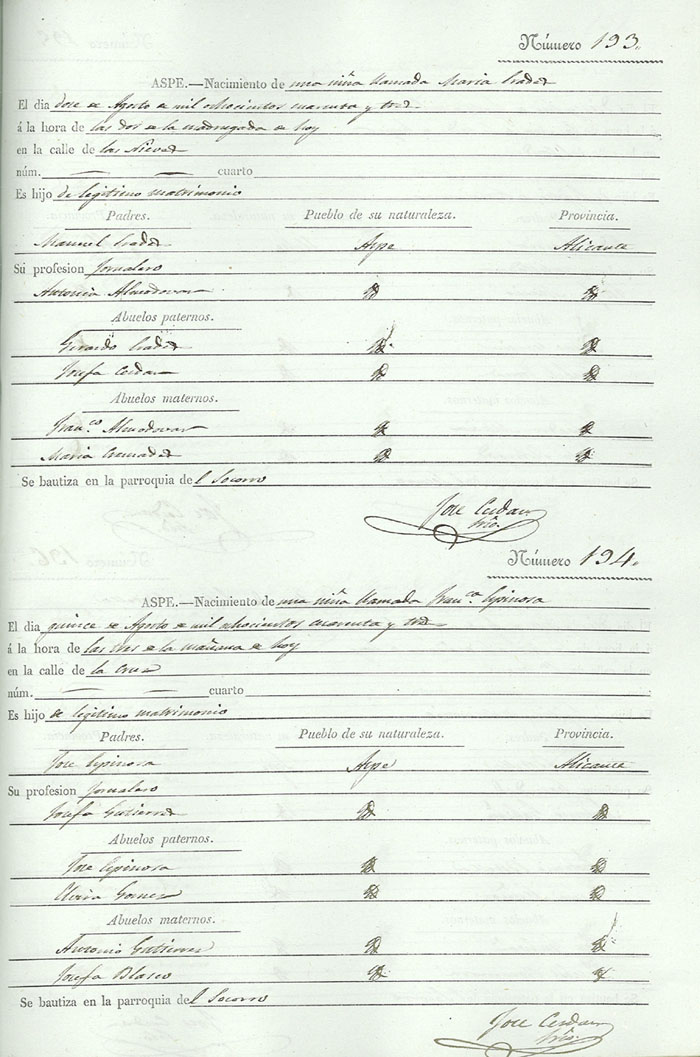 Número 193.
ASPE.—Nacimiento de una niña llamada Maria Prades
El dia dose de Agosto de mil ochocientos cuarenta y tres
á la hora de las dos de la madrugada de hoy
en la calle de las Nieves
núm. — — cuarto
Es hijo de legitimo matrimonio
Padres. Pueblo de su naturaleza. Provincia.
Manuel Prades Aspe Alicante
Su profesion Jornalero
Antonia Almodovar
Abuelos paternos.
Gerardo Prades
Josefa Cerdan
Abuelos maternos.
Fran.co Almodovar
Maria
Se bautiza en la parroquia del Socorro
Jose Cerdan
Srio.
Número 194.
ASPE.—Nacimiento de una niña llamada Fran.ca Espinosa
El dia quince de Agosto de mil ochocientos cuarenta y tres
á la hora de las tres de la mañana de hoy
en la calle de la Cruz
núm. — — cuarto
Es hijo de legitimo matrimonio
Padres. Pueblo de su naturaleza. Provincia.
Jose Espinosa Aspe Alicante
Su profesion Jornalero
Josefa Gutierrez
Abuelos paternos.
Jose Espinosa
Elvira Gomez
Abuelos maternos.
Antonio Gutierrez
Josefa Blasco
Se bautiza en la parroquia del Socorro
Jose Cerdan
Srio.